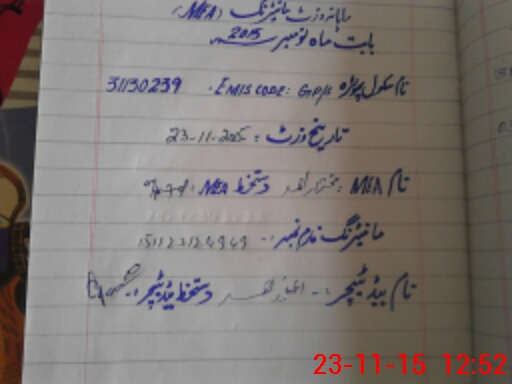 ماہانہ وزٹ مانیٹرنگ (MEA)
بابت ماہ نومبر 2015
نام سکول EMIS CODE: GP/S 31130239
تاریخ وزٹ: 23-11-2015
نام MEA: دستخط MEA:
مانیٹرنگ فارم نمبر:- 151123124949
نام ہیڈ ٹیچر:- دستخط ہیڈ ٹیچر:-
23-11-15 12:52